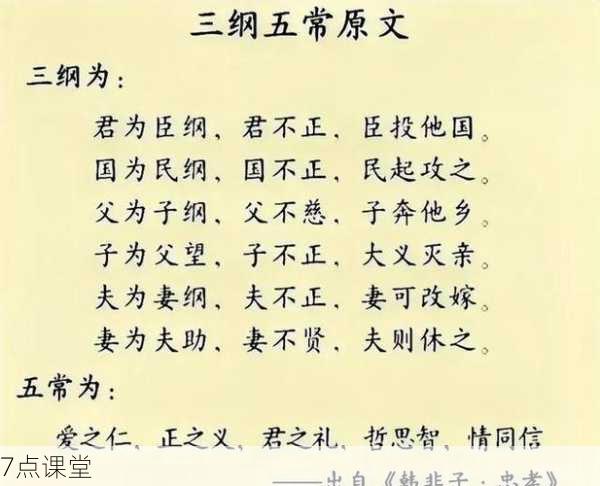 三纲五常原文
三纲为：
君为臣纲，君不正，臣投他国。
国为民纲，国不正，民起攻之。
父为子纲，父不慈，子奔他乡。
子为父望，子不正，大义灭亲。
夫为妻纲，夫不正，妻可改嫁。
妻为夫助，妻不贤，夫则休之。
五常为：
爱之仁，正之义，君之礼，哲思智，情同信
——出自《韩非子·忠孝》
7点课堂